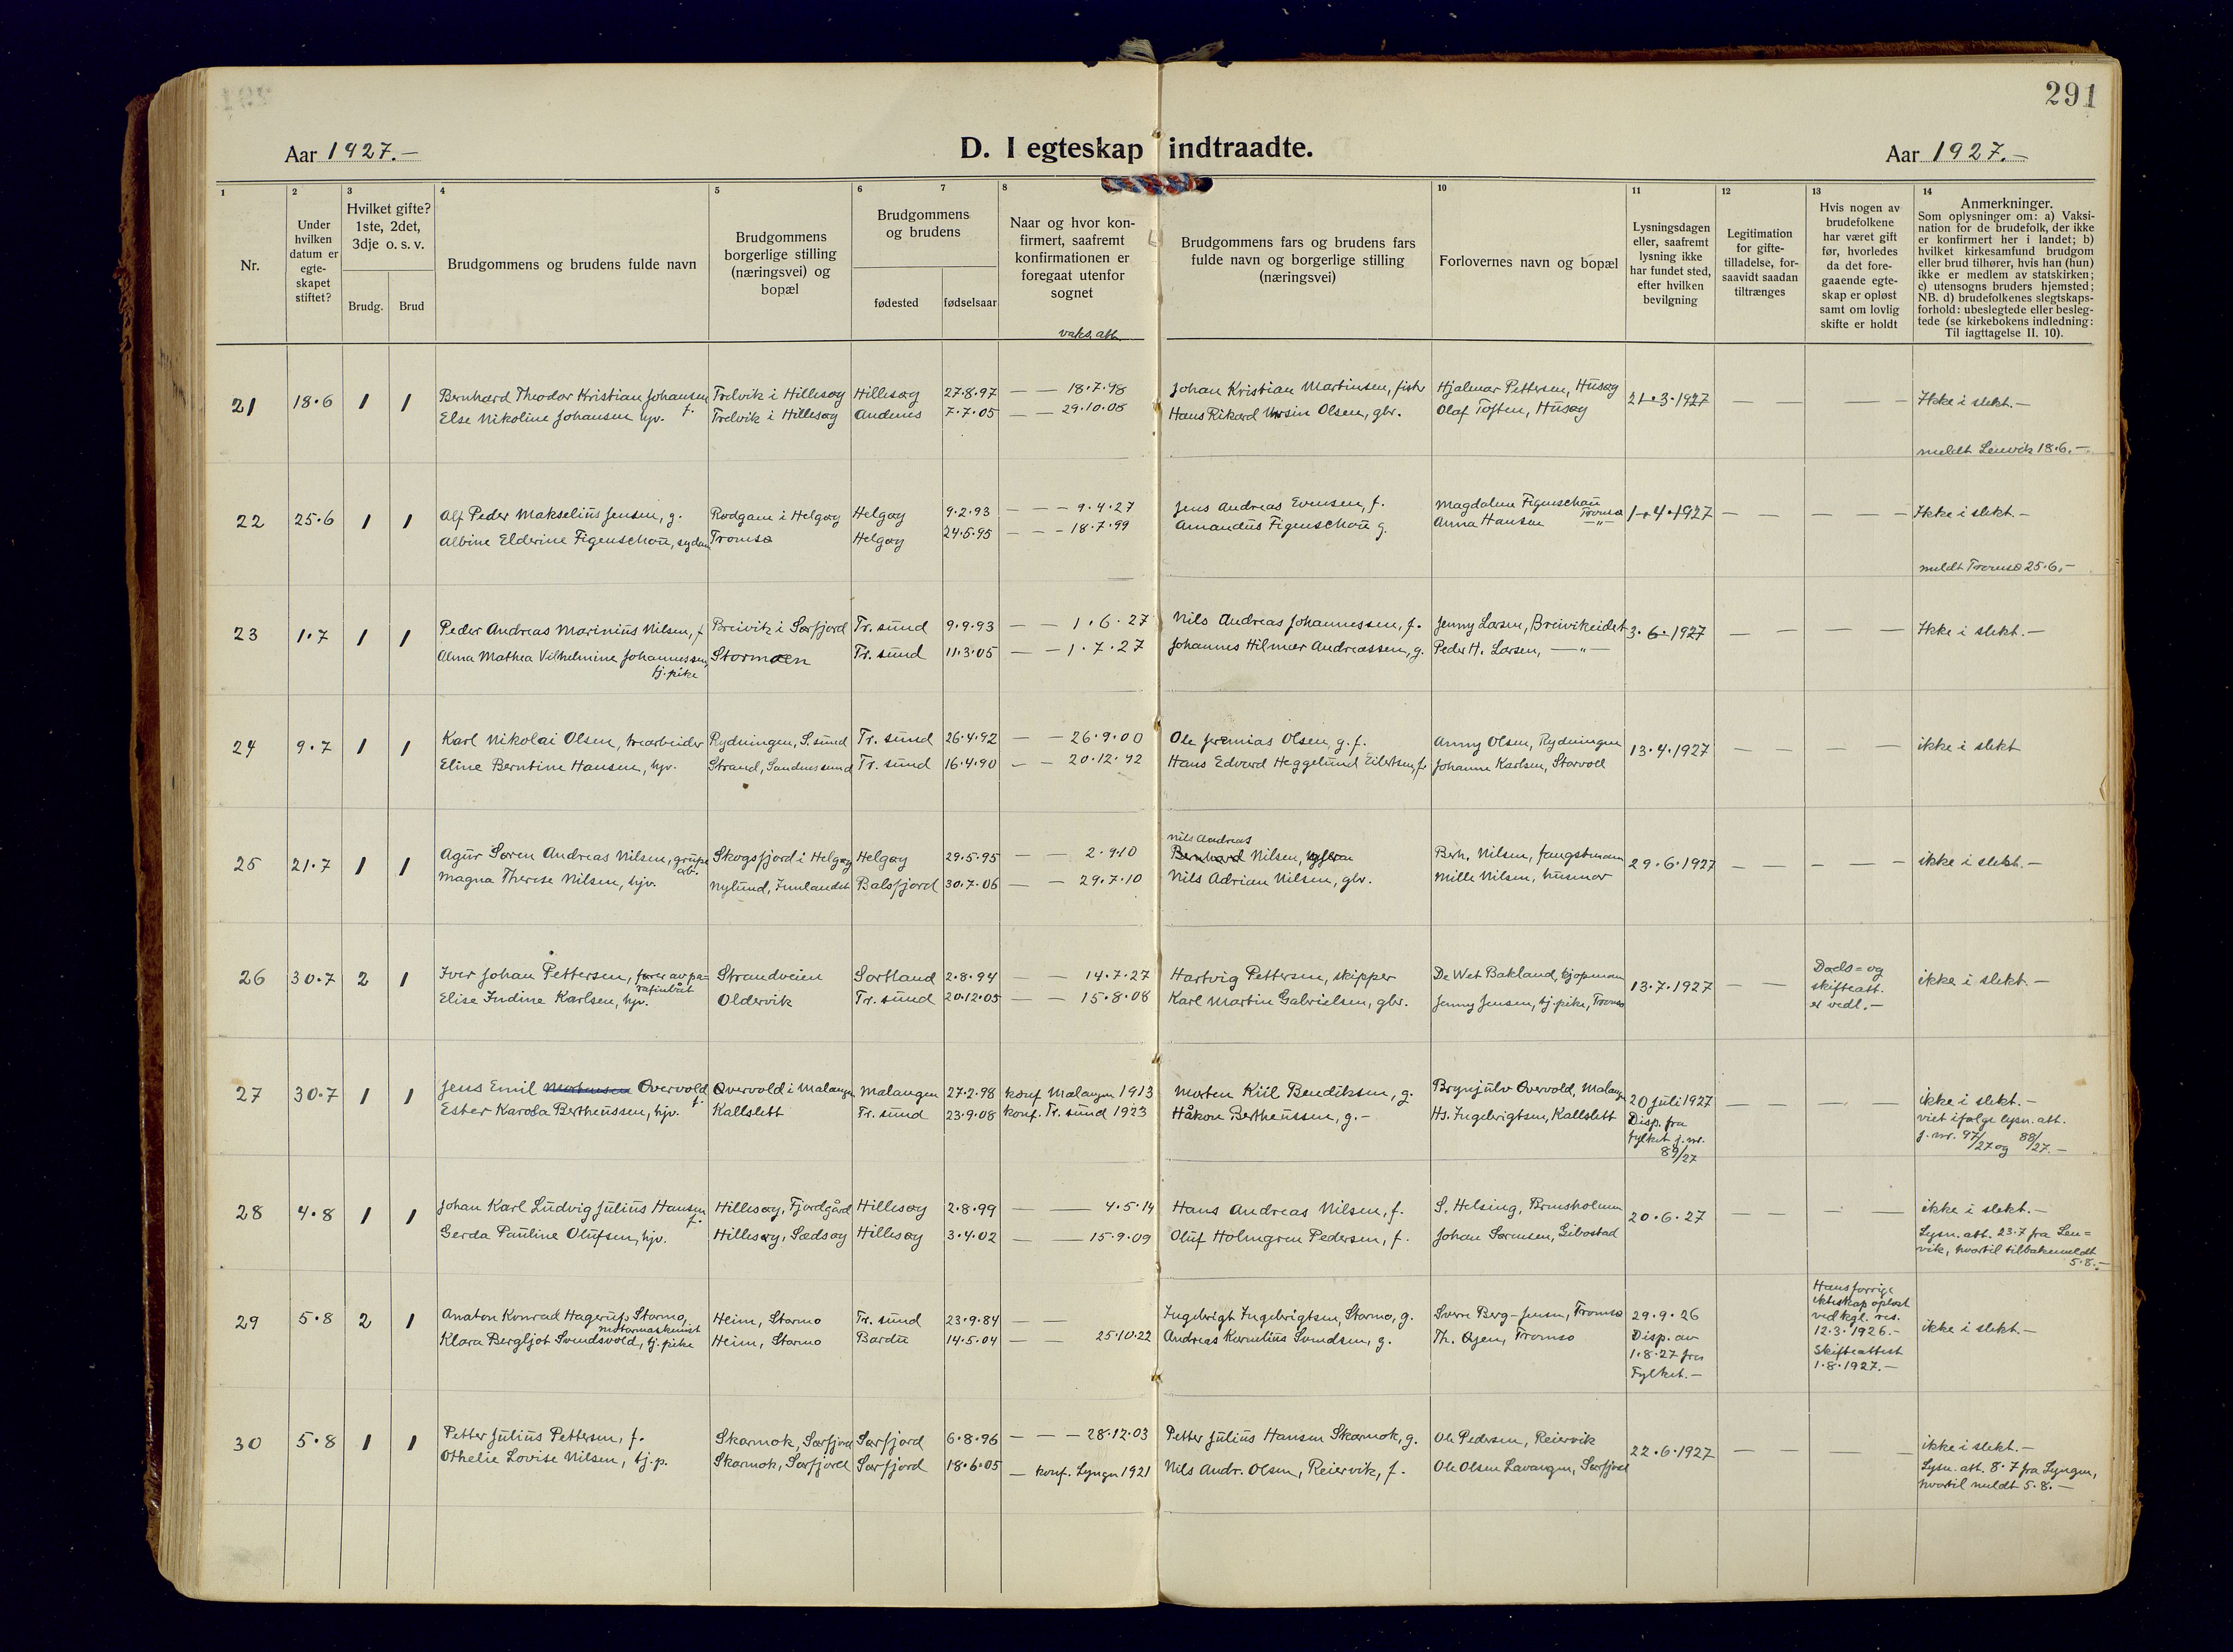 291
Aar 1927.—
D. I egteskap indtraadte.
Aar 1927.—
1 2 3 4 5 6 7 8 10 11 12 13 14
Nr.
Under hvilken datum er egte-skapet stiftet?
Hvilket gifte? 1ste, 2det, 3dje o. s. v.
Brudg. Brud
Brudgommens og brudens fulde navn
Brudgommens borgerlige stilling (næringsvei) og bopæl
Brudgommens og brudens
fødested fødselsaar
Naar og hvor kon-firmert, saafremt konfirmationen er foregaat utenfor sognet
vaks. att.
Brudgommens fars og brudens fars fulde navn og borgerlige stilling (næringsvei)
Forlovernes navn og bopæl
Lysningsdagen eller, saafremt lysning ikke har fundet sted, efter hvilken bevilgning
Legitimation for gifte-tilladelse, for-saavidt saadan tiltrænges
Hvis nogen av brudefolkene har været gift før, hvorledes da det fore-gaaende egte-skap er opløst samt om lovlig skifte er holdt
Anmerkninger.
Som oplysninger om: a) Vaksi-nation for de brudefolk, der ikke er konfirmert her i landet; b) hvilket kirkesamfund brudgom eller brud tilhører, hvis han (hun) ikke er medlem av statskirken; c) utensogns bruders hjemsted; NB. d) brudefolkenes slegtskaps-forhold: ubeslegtede eller besleg-tede (se kirkebokens indledning: Til iagttagelse II. 10).
21 18.6 1 1 Bernhard Theodor Kristian Johansen f. Trelvik i Hillesøy Hillesøy 27.8.97 — — 18.7.98 Johan Kristian Martinsen, fisker Hjalmar Pettersen, Husøy 21.3.1927 — — — — Ikke i slekt.—
Else Nikoline Johansen hjv. Trelvik i Hillesøy Andenes 7.7.05 — — 29.10.08 Hans Rikard Ursin Olsen, gbr. Olaf Toften, Husøy
meldt Lenvik 18.6.—
22 25.6 1 1 Alf Peder Makselius Jensen, g. Rødgam i Helgøy Helgøy 9.2.93 — — — 9.4.27 Jens Andreas Evensen, f. Magdalena Figenschou Tromsø 1.4.1927 — — — — Ikke i slekt.—
Albine Elderine Figenschou, sydame Tromsø Helgøy 24.5.95 — — — 18.7.99 Amandus Figenschou g. Anna Hansen —"—
meldt Tromsø 25.6.—
23 1.7 1 1 Peder Andreas Marinius Nilsen, f. Breivik i Sørfjord Tr. sund 9.9.93 — — 1.6.27 Nils Andreas Johannessen, f. Jenny Larsen, Breivikeidet 3.6.1927 — — — — Ikke i slekt.—
Alma Mathea Vilhelmine Johannessen, tj. pike Stormoen Tr. sund 11.3.05 — — 1.7.27 Johannes Hilmar Andreassen, g. Peder H. Larsen, —"—
24 9.7 1 1 Karl Nikolai Olsen, trearbeider Rydningen, S.sund Tr. sund 26.4.92 — — 26.9.00 Ole Jeremias Olsen, g. f. Anny Olsen, Rydningen 13.4.1927 — — — — ikke i slekt
Eline Berntine Hansen, hjv. Strand, Sandnessund Tr. sund 16.4.90 — — 20.12.92 Hans Edvard Heggelund Eilertsen, f. Johanne Karlsen, Storvoll
25 21.7 1 1 Agur Søren Andreas Nilsen, grube arb. Skogsfjord i Helgøy Helgøy 29.5.95 — — 2.9.10 Nils Andreas Bernhard Nilsen, 29.6.1927 Berh. Nilsen, fangstmann — — — — ikke i slekt.—
Magna Therese Nilsen, hjv. Nylund, Innlandet Balsfjord 30.7.06 — — 29.7.10 Nils Adrian Nilsen, gbr. Mille Nilsen, husmor
26 30.7 2 1 Iver Johan Pettersen, fører av pa-rafinbåt Strandveien Sortland 2.8.94 — — 14.7.27 Hartvig Pettersen, skipper De Wet Bakland, kjøpmann 13.7.1927 — — Døds= og skifteatt. er vedl.— ikke i slekt.—
Elise Indine Karlsen, hjv. Oldervik Tr. sund 20.12.05 — — 15.8.08 Karl Martin Gabrielsen, gbr. Jenny Jensen, tj. pike, Tromsø
27 30.7 1 1 Jens Emil Mortensen Overvold f. Overvold i Malangen Malangen 27.2.98 konf. Malangen 1913 Morten Kiil Bendiksen, g. Brynjulv Overvold, Malangen 20 juli 1927 — — — — ikke i slekt.—
Ester Karola Bertheussen, hjv. Kallslett Tr. sund 23.9.08 konf. Tr. sund 1923 Håkon Bertheussen, g.— Hs. Ingebrigtsen, Kallslett Disp. fra fylket j. nr. 89/27
viet ifølge lysn. att. j. nr. 97/27 og 88/27.—
28 4.8 1 1 Johan Karl Ludvig Julius Hansen f. Hillesøy, Fjordgård Hillesøy 2.8.99 — — 4.5.14 Hans Andreas Nilsen, f. S. Helsing, Brensholmen 20.6.27 — — — — ikke i slekt.—
Gerda Pauline Olufsen, hjv. Hillesøy, Sædsøy Hillesøy 3.4.02 — — 15.9.09 Oluf Holmgren Pedersen, f. Johan Sørensen, Gibostad
Lysn. att. 23.7 fra Len=vik, hvortil tilbakemeldt 5.8.—
29 5.8 2 1 Anaton Konrad Hagerup Stormo, motormaskinist Heim, Stormo Tr. sund 23.9.84 — — Ingebrigt Ingebrigtsen, Stormo, g. Sverre Berg-Jensen, Tromsø 29.9.26 Disp. av 1.8.27 fra Fylket.—
Hans forrige ekteskap opløst ved kgl. res. 12.3.1926.— Skifteattest 1.8.1927.— ikke i slekt.—
Klara Bergljot Svendsvold, tj. pike Heim, Stormo Bardu 14.5.04 — — 25.10.22 Andreas Kornelius Svendsen, g. Th. Øyen, Tromsø
30 5.8 1 1 Petter Julius Pettersen, f. Skarmok, Sørfjord Sørfjord 6.8.96 — — — 28.12.03 Petter Julius Hansen Skarmok, g. Ole Pedersen, Reiervik 22.6.1927 — — — — ikke i slekt.—
Othelie Lovise Nilsen, tj. p. Skarmok, Sørfjord Sørfjord 18.6.05 — konf. Lyngen 1921 Nils Andr. Olsen, Reiervik, f. Ole Olsen Lavangen, Sørfjord
Lysn. att. 8.7 fra Lyngen, hvortil meldt 5.8.—